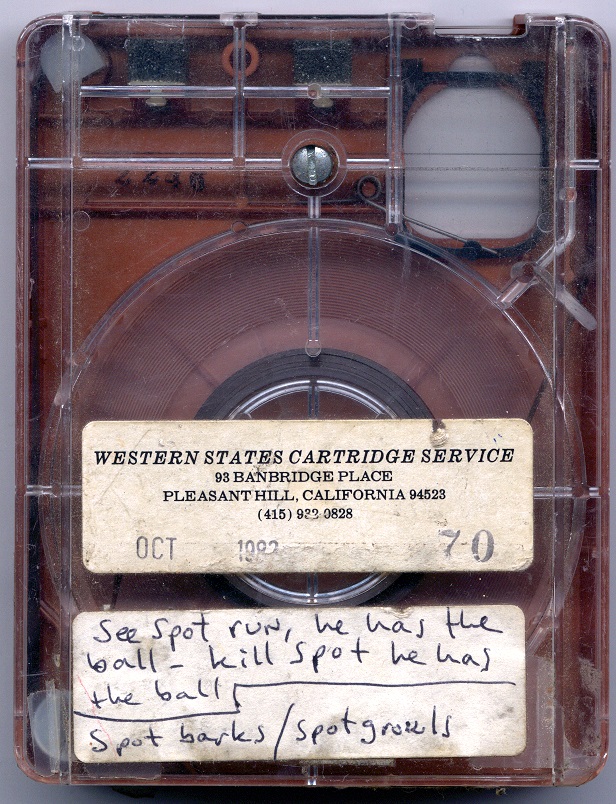 WESTERN STATES CARTRIDGE SERVICE
93 BANBRIDGE PLACE
PLEASANT HILL, CALIFORNIA 94523
(415) 932 0828
OCT 1982 70
See Spot run, he has the
ball - kill Spot he has
the ball
Spot barks / Spot growls